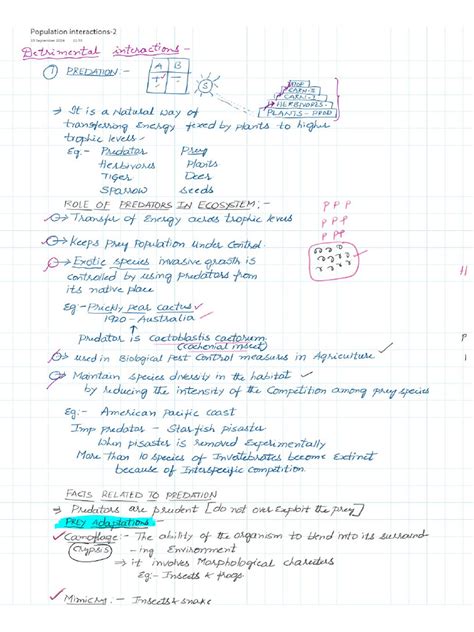 Population interactions-2
Detrimental interactions -
① PREDATION :-
A B
S
TOP
CARN-2
CARN-1
HERBIVORES
PLANTS - PROD
⇒ It is a Natural way of
transferring Energy fexed by plants to higher
trophic levels ✓
Eg:- Predator Prey
Herbivores Plants
Tiger Deer
Sparrow Seeds
ROLE OF PREDATORS IN ECOSYSTEM :-
→ Transfer of Energy across trophic levels
P P P
P P P
P P P
→ Keeps Prey Population Under Control.
→ Exotic species invasive growth is
controlled by using predators from
its native place
Eg:- Prickly pear cactus ✓
1920 - Australia
Predator is cactoblastis cactorum
(cochenial insect)
→ used in Biological Pest Control measures in Agriculture ✓
→ Maintain species diversity in the habitat
by reducing the intensity of the Competition among prey species
Eg:- American pacific coast
Imp predator - Starfish pisaster
When pisaster is removed Experimentally
More than 10 species of Invertebrates become Extinct
because of Interspecific competition.
FACTS RELATED TO PREDATION
⇒ Predators are prudent [do not over Exploit the prey]
PREY Adaptations -
✓ Camoflage :- The ability of the organism to blend into its surround
(crypsis) - ing Environment
⇒ it involves Morphological charecters
Eg:- Insects & frogs
✓ Mimicry :- Insects & snake